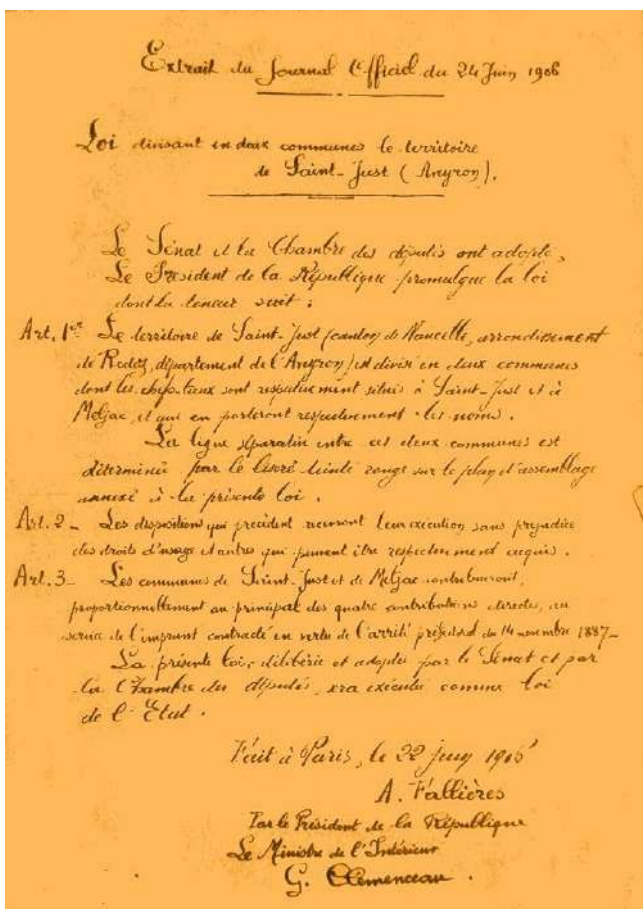 Extrait du Journal Officiel du 24 Juin 1906
Loi divisant en deux communes le territoire
de Saint-Just (Aveyron).
Le Sénat et la Chambre des députés ont adopté,
Le Président de la République promulgue la loi
dont la teneur suit :
Art. 1er Le territoire de Saint-Just (canton de Naucelle, arrondissement
de Rodez, département de l'Aveyron) est divisé en deux communes
dont les chefs-lieux sont respectivement situés à Saint-Just et à
Meljac, et qui en porteront respectivement les noms.
La ligne séparative entre ces deux communes est
déterminée par le liseré teinté rouge sur le plan d'assemblage
annexé à la présente loi.
Art. 2 _ Les dispositions qui précèdent recevront leur exécution sans préjudice
des droits d'usage et autres qui peuvent être respectivement acquis.
Art. 3 _ Les communes de Saint-Just et de Meljac contribueront,
proportionnellement au principal des quatre contributions directes, au
service de l'emprunt contracté en vertu de l'arrêté préfectoral du 14 novembre 1887_
La présente loi, délibérée et adoptée par le Sénat et par
la Chambre des députés, sera exécutée comme loi
de l'Etat.
Fait à Paris, le 22 juin 1906
A. Fallières
Par le Président de la République
Le Ministre de l'Intérieur
G. Clemenceau.